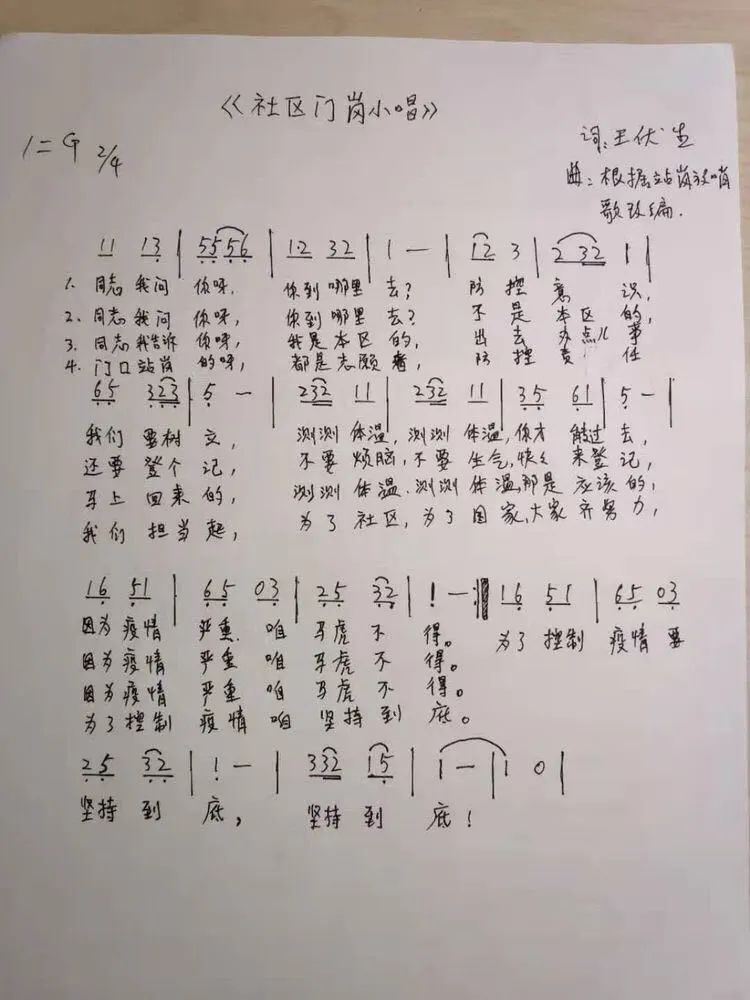 《社区门岗小唱》
1=G 2/4
词:王伏生
曲:根据站岗放哨
歌改编.
11 13 | 5556 | 12 32 | 1 — | 12 3 | 2 32 1 |
1. 同志我问 你呀, 你到哪里 去? 防控意识,
2. 同志我问 你呀, 你到哪里 去? 不是本区的,
3. 同志我告诉 你呀, 我是本区的, 出去办点儿事
4. 门口站岗 的呀, 都是志愿者, 防控责任
65 323 | 5 — | 232 11 | 232 11 | 35 61 | 5 — |
我们 要树立, 测测体温, 测测体温, 你才能过去,
还要登个记, 不要烦脑, 不要生气, 快々来登记,
马上回来的, 测测体温, 测测体温, 那是应该的,
我们担当起, 为了社区, 为了国家, 大家齐努力,
16 51 | 65 03 | 25 32 | 1 — :‖ 16 51 | 65 03
因为疫情 严重 咱 马虎不 得。 为了控制 疫情 要
因为疫情 严重 咱 马虎不 得。
因为疫情 严重 咱 马虎不 得。
为了控制 疫情 咱 坚持到 底。
25 32 | 1 — | 332 15 | 1 — | 1 0 |
坚持到 底, 坚持到 底!